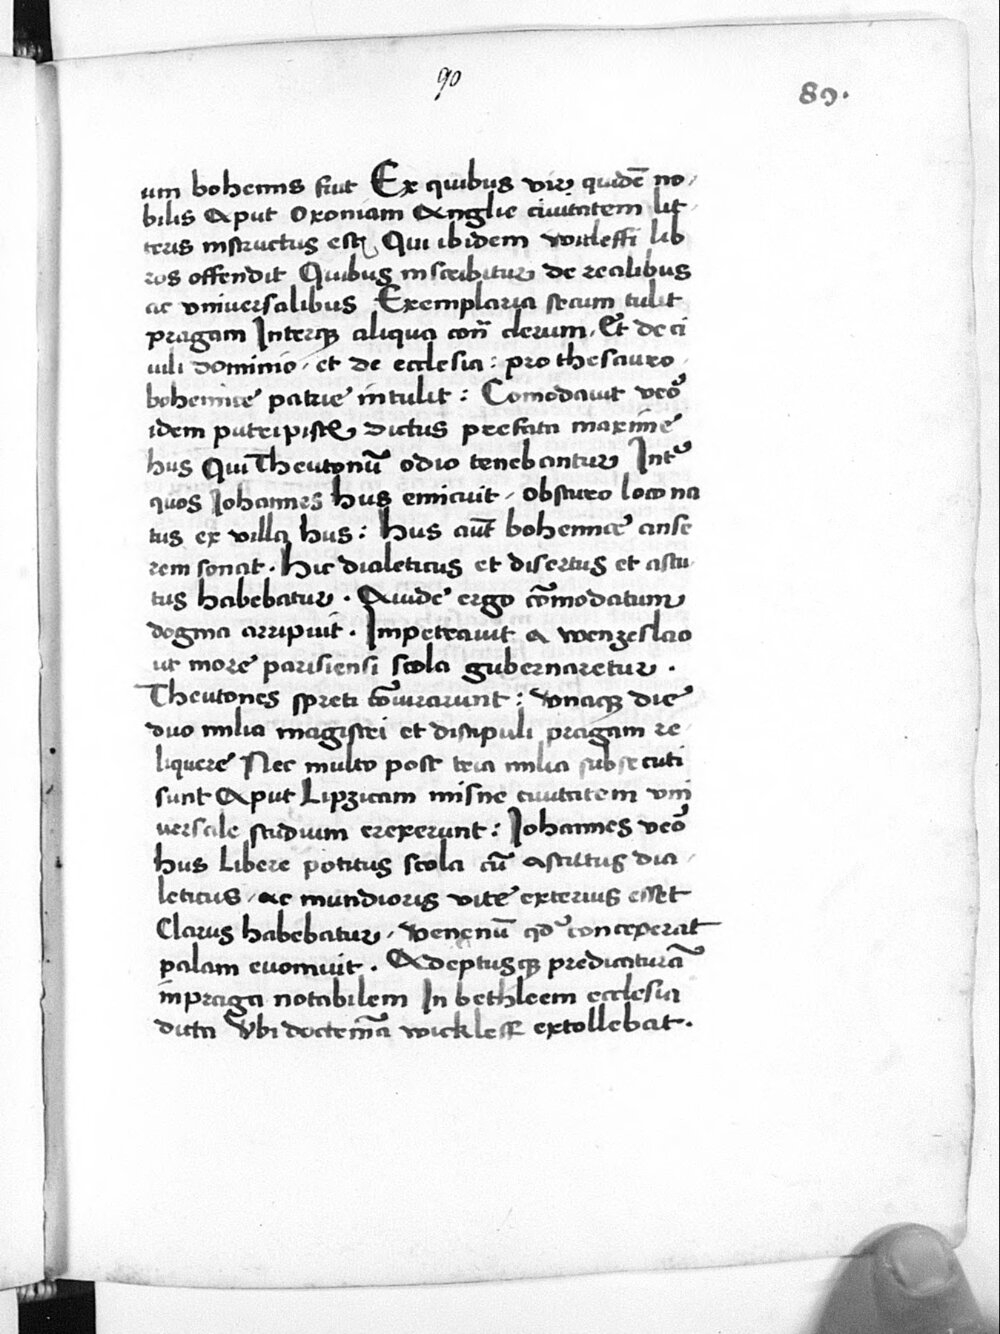 90
89.
um bohemis fiut Ex quibus vir quidē no,
bilis Aput Oxoniam Anglie ciuitatem lit,
teris instructus est, Qui ibidem vuicleffi lib
ros offendit Quibus inscribitur de realibus
ac vniuersalibus Exemplaria secum tulit
pragam Interq aliqua con̄ clerum, Et de ci
uili dominio, et de ecclesia : pro thesauro
bohemice patrie intulit : Comodauit vēo
idem putripiscꝭ dictus prefata maxime
hus Qui Theutonū odio tenebantur Int
quos Johannes hus emicuit, obscuro loco na
tus ex villa hus : hus aūt bohemice anse
rem sonat. Hic dialeticus et disertus et astu
tus habebatur. Auide ergo cōmodatum
dogma arripuit. Impetrauit a wenzeslao
ut more parisiensi scola gubernaretur.
Theutones spreti cōiurarunt : vnaq die
duo milia magistri et discipuli pragam re
liquere Nec multo post tria milia subsecuti
sunt Aput Lipzicam misne ciuitatem vni
uersale studium erexerunt : Johannes vēo
hus Libere potitus scola cū astutus dia,
leticus, ac mundioris vite exterius esset
Clarus habebatur, venenū qd conceperat
palam euomuit. Adeptusq predicaturā
in praga notabilem In bethleem ecclesia
dicta Vbi doctrinā wickleff extollebat.